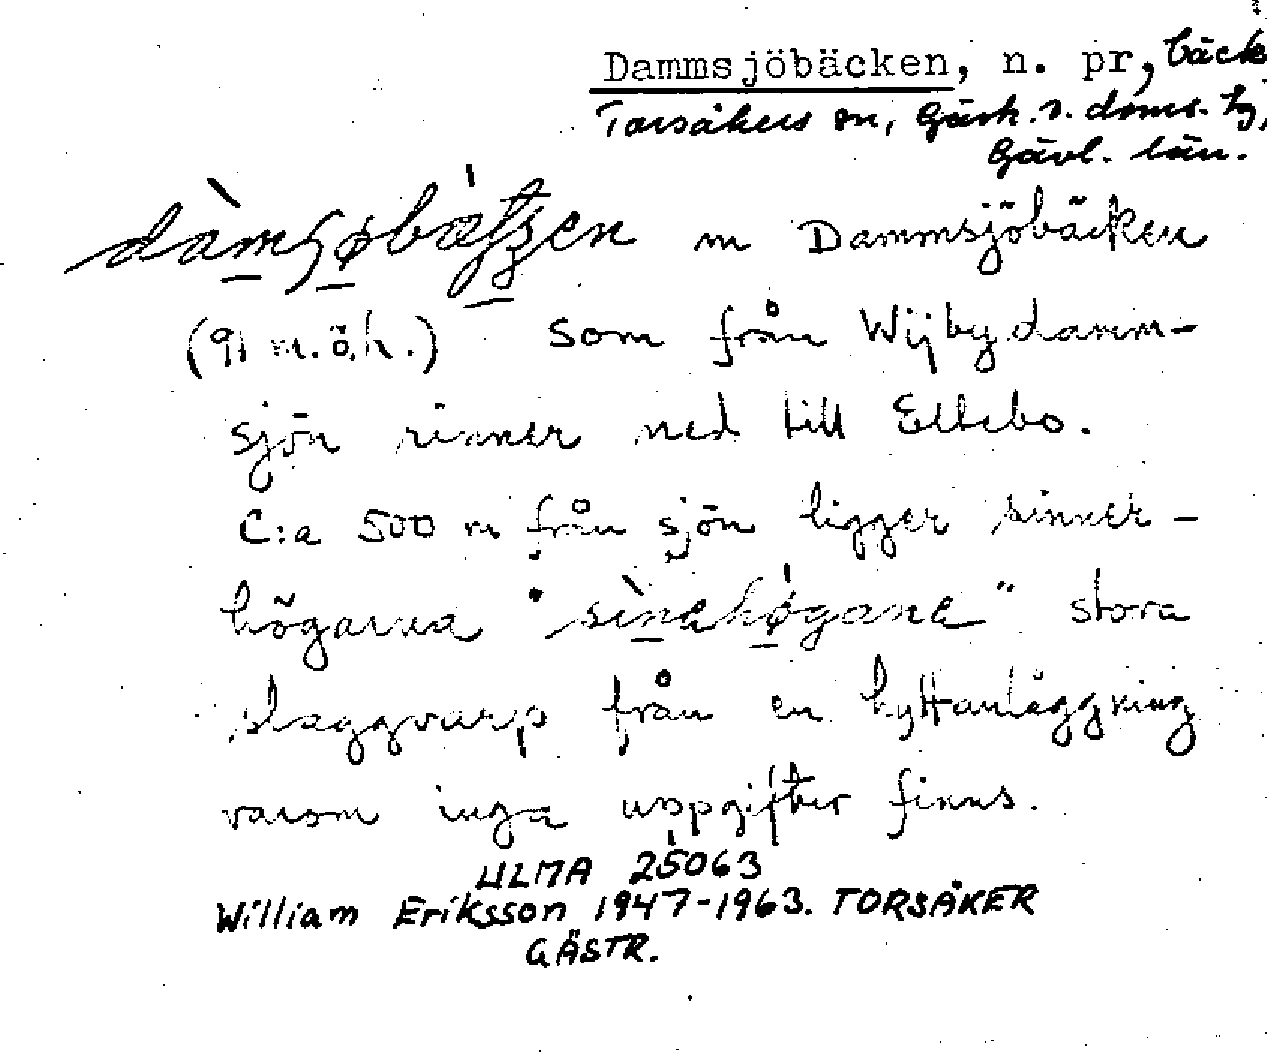 Dammsjöbäcken, n. pr, bäck
Torsåkers sn, Gästr. s. doms. tg,
Gävl. län.
m Dammsjöbäcken
(91 m.ö.h.) som från Wijbydamm-
sjön rinner ned till Ellebo.
C:a 500 m från sjön ligger sinner-
högarna " " stora
slaggvarp från en hyttanläggning
varom inga uppgifter finns.
ULMA 25063
William Eriksson 1947-1963. TORSÅKER
GÄSTR.